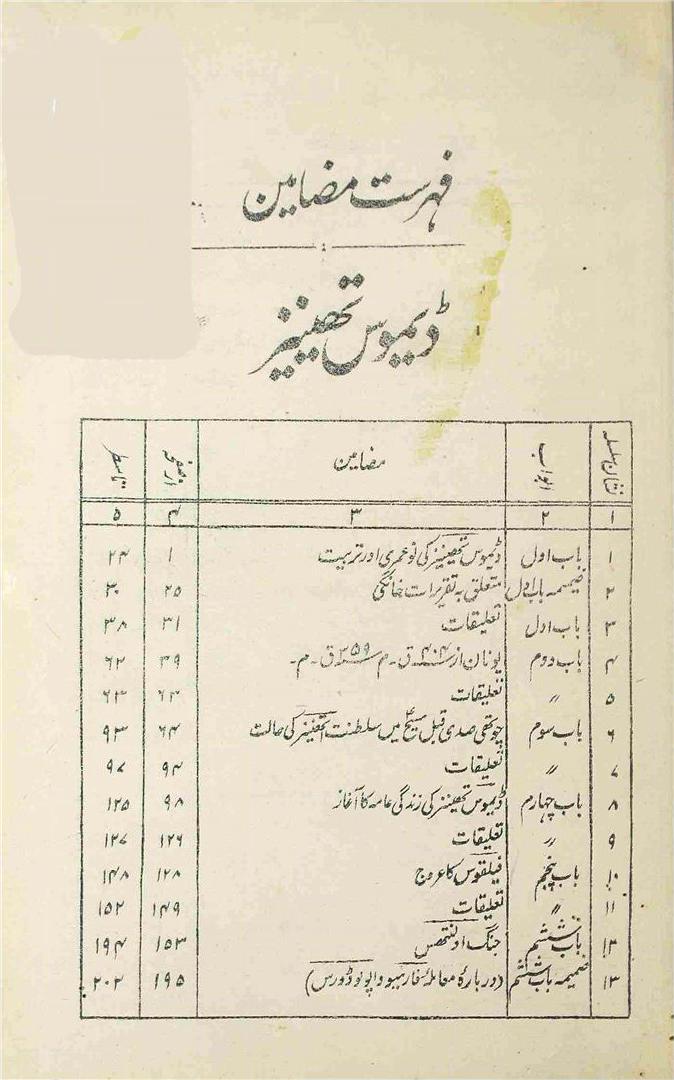 فہرست مضامین
ڈیموس تھینیز
نشان سلسلہ ابواب مضامین از صفحہ تا سطر
۱ ۲ ۳ ۴ ۵
۱ باب اول ڈیموس تھینیز کی نوعمری اور تربیت ۱ ۲۴
۲ ضمیمہ باب اول متعلق بہ تقریرات خانگی ۲۵ ۳۰
۳ باب اول تعلیقات ۳۱ ۳۸
۴ باب دوم یونان از ۴۰۴ ق۔م ۳۵۹ ق۔م۔ ۳۹ ۶۲
۵ 〃 تعلیقات ۶۳ ۶۳
۶ باب سوم چوتھی صدی قبل مسیح میں سلطنت ایتھینز کی حالت ۶۴ ۹۳
۷ 〃 تعلیقات ۹۴ ۹۷
۸ باب چہارم ڈیموس تھینیز کی زندگی عامہ کا آغاز ۹۸ ۱۲۵
۹ 〃 تعلیقات ۱۲۶ ۱۲۷
۱۰ باب پنجم فیلقوس کا عروج ۱۲۸ ۱۴۸
۱۱ 〃 تعلیقات ۱۴۹ ۱۵۲
۱۲ باب ششم جنگ اولنتھس ۱۵۳ ۱۹۴
۱۳ ضمیمہ باب ششم (دربارۂ معاملۂ فارمیو و اپولوڈورس) ۱۹۵ ۲۰۲